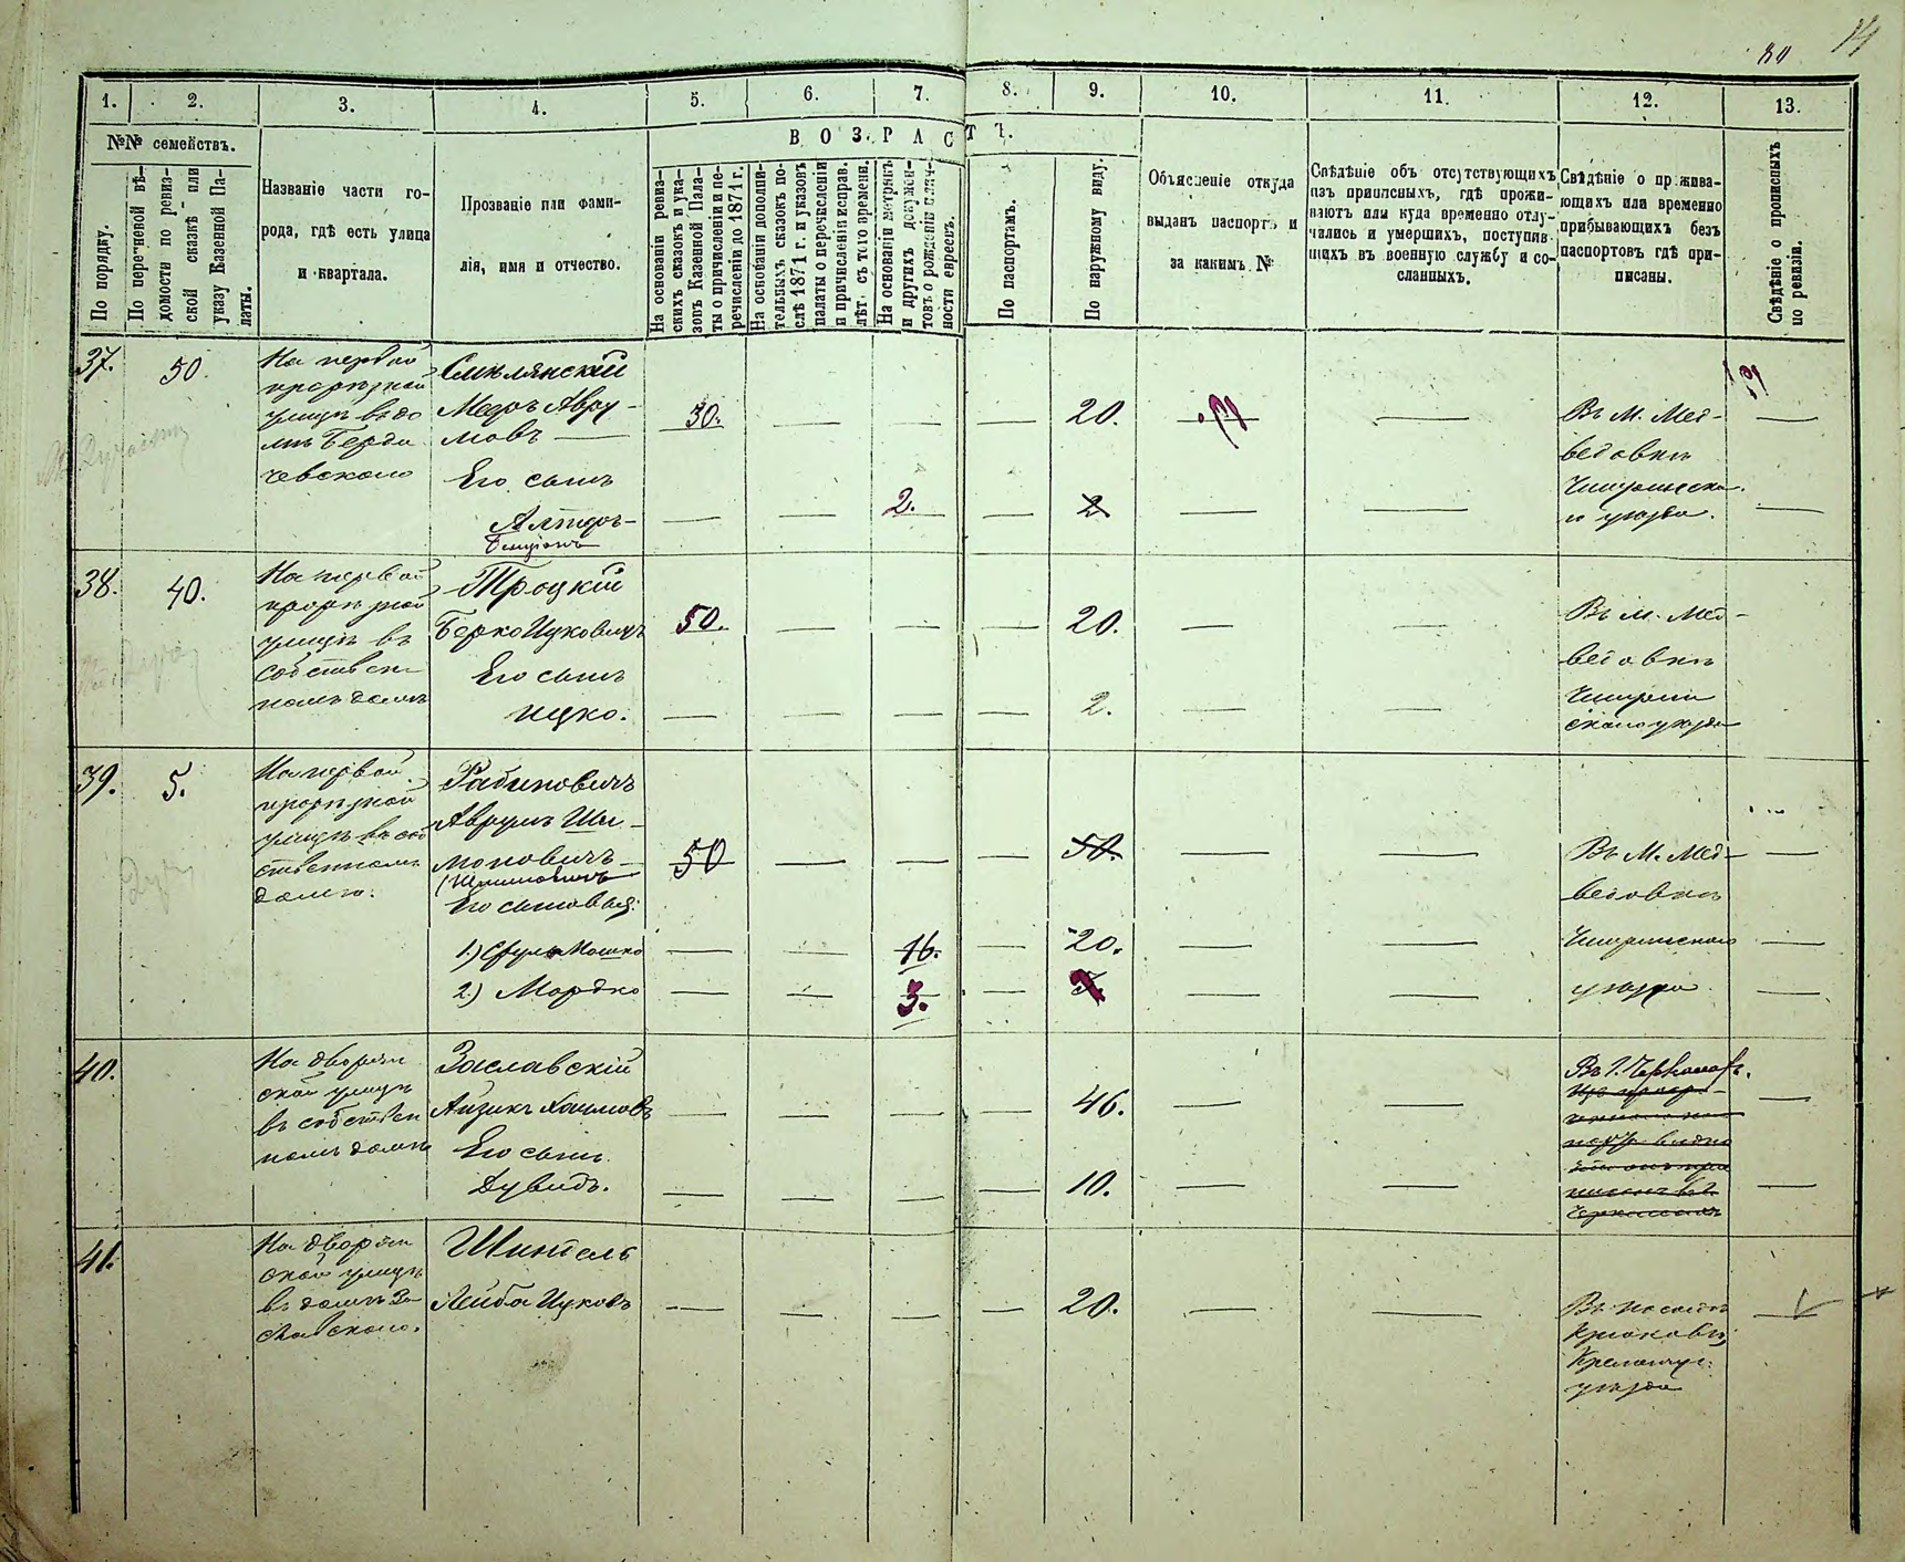 80
14
1. 2. 3. 4. 5. 6. 7. 8. 9. 10. 11. 12. 13.
№№ семействъ.
По порядку.
По перечневой вѣ-
домости по ревиз-
ской сказкѣ или
указу Казенной Па-
латы.
Названіе части го-
рода, гдѣ есть улица
и квартала.
Прозваніе или фами-
лія, имя и отчество.
ВОЗРАСТЪ.
На основаніи ревиз-
скихъ сказокъ и ука-
зовъ Казенной Пала-
ты о причисленіи и пе-
речисленіи до 1871 г.
На основаніи дополни-
тельныхъ сказокъ по-
слѣ 1871 г. и указовъ
палаты о перечисленіи
и причисленіи исправ.
лѣт. съ того времени.
На основаніи метрикъ
и другихъ докумен-
товъ о рожденіи
ности евреевъ.
По паспортамъ.
По наружному виду.
Объясненіе откуда
выданъ паспортъ и
за какимъ №
Свѣдѣніе объ отсутствующихъ
изъ приписныхъ, гдѣ прожи-
ваютъ или куда временно отлу-
чились и умершихъ, поступив-
шихъ въ военную службу и со-
сланныхъ.
Свѣдѣніе о прожива-
ющихъ или временно
прибывающихъ безъ
паспортовъ гдѣ при-
писаны.
Свѣдѣніе о прописныхъ
по ревизіи.
37. 50.
На первой
прорѣзной
улицѣ въ до
мѣ Берди
чевскаго
Смѣлянскій
Мееръ Авру-
мовъ
30. 20.
Его сынъ
Алтеръ-
Бенціонъ
2. 2.
Въ М. Мед-
ведовкѣ
Чигиринска
го уѣзда.
38. 40.
На первой
прорѣзной
улицѣ въ
собствен
номъ домѣ
Троцкій
Берко Ицковичъ
50. 20.
Его сынъ
Ицко.
2.
Въ М. Мед-
ведовкѣ
Чигирин
скаго уѣзда
39. 5.
На первой
прорѣзной
улицѣ въ соб
ственномъ
домѣ.
Рабиновичъ
Аврумъ Ши-
моновичъ
50 50.
Его сыновья:
1.) Сруль Мошко
16. 20.
2.) Мордко
3.
Въ М. Мед-
ведовкѣ
Чигиринскаго
уѣзда.
40.
На дворян
ской улицѣ
въ собствен
номъ домѣ
Заславскій
Айзикъ Хаимовъ
46.
Его сынъ
Дувидъ.
10.
Въ г. Черкасахъ.
41.
На дворян
ской улицѣ
въ домѣ За
славскаго.
Шинкель
Лейба Ицковъ
20.
Въ посадѣ
Крюковѣ,
Кременчуг.
уѣзда